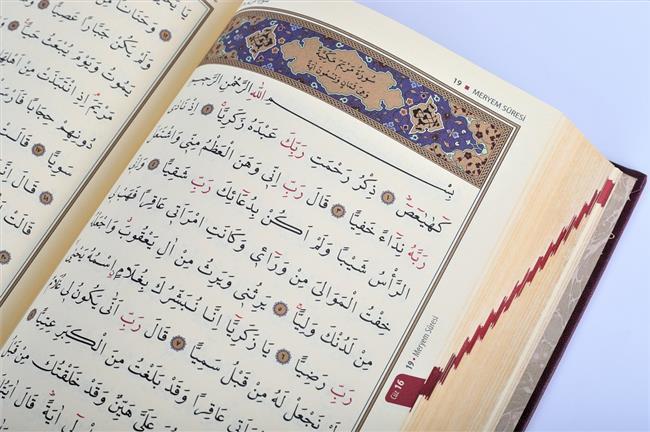 19 ■ MERYEM SÛRESİ
سُورَةُ مَرْيَمَ مَكِّيَّةٌ
وَهِيَ ثَمَانٍ وَتِسْعُونَ اٰيَةً
بِسْمِ اللّٰهِ الرَّحْمٰنِ الرَّحِيمِ
كٓهٰيٰعٓصٓ ﴿١﴾ ذِكْرُ رَحْمَتِ رَبِّكَ عَبْدَهُ زَكَرِيَّا ﴿٢﴾ اِذْ نَادٰى
رَبَّهُ نِدَٓاءً خَفِيًّا ﴿٣﴾ قَالَ رَبِّ اِنِّي وَهَنَ الْعَظْمُ مِنِّي وَاشْتَعَلَ
الرَّأْسُ شَيْبًا وَلَمْ اَكُنْ بِدُعَٓائِكَ رَبِّ شَقِيًّا ﴿٤﴾ وَاِنِّي
خِفْتُ الْمَوَالِيَ مِنْ وَرَٓاءِي وَكَانَتِ امْرَاَتِي عَاقِرًا فَهَبْ لِي
مِنْ لَدُنْكَ وَلِيًّا ﴿٥﴾ يَرِثُنِي وَيَرِثُ مِنْ اٰلِ يَعْقُوبَ وَاجْعَلْهُ
رَبِّ رَضِيًّا ﴿٦﴾ يَا زَكَرِيَّٓا اِنَّا نُبَشِّرُكَ بِغُلَامٍ اسْمُهُ يَحْيٰى
لَمْ نَجْعَلْ لَهُ مِنْ قَبْلُ سَمِيًّا ﴿٧﴾ قَالَ رَبِّ اَنّٰى يَكُونُ لِي غُلَامٌ
امْرَاَتِي عَاقِرًا وَقَدْ بَلَغْتُ مِنَ الْكِبَرِ عِتِيًّا
عَلَيَّ هَيِّنٌ وَقَدْ خَلَقْتُكَ مِنْ قَبْلُ
لِٓي اٰيَةً قَالَ
Cüz 16
19 • Meryem Sûresi
وَحَنَانًا مِنْ
وَلَمْ يَكُنْ جَبَّارًا عَصِيًّا
يَمُوتُ وَيَوْمَ يُبْعَثُ حَيًّا
مَرْيَمَ اِذِ انْتَبَذَتْ مِنْ اَهْلِهَا
دُونِهِمْ حِجَابًا فَاَرْسَلْنَا
سَوِيًّا ﴿١٧﴾ قَالَتْ
﴿١٨﴾ قَالَ اِنَّمَا
قَالَتْ